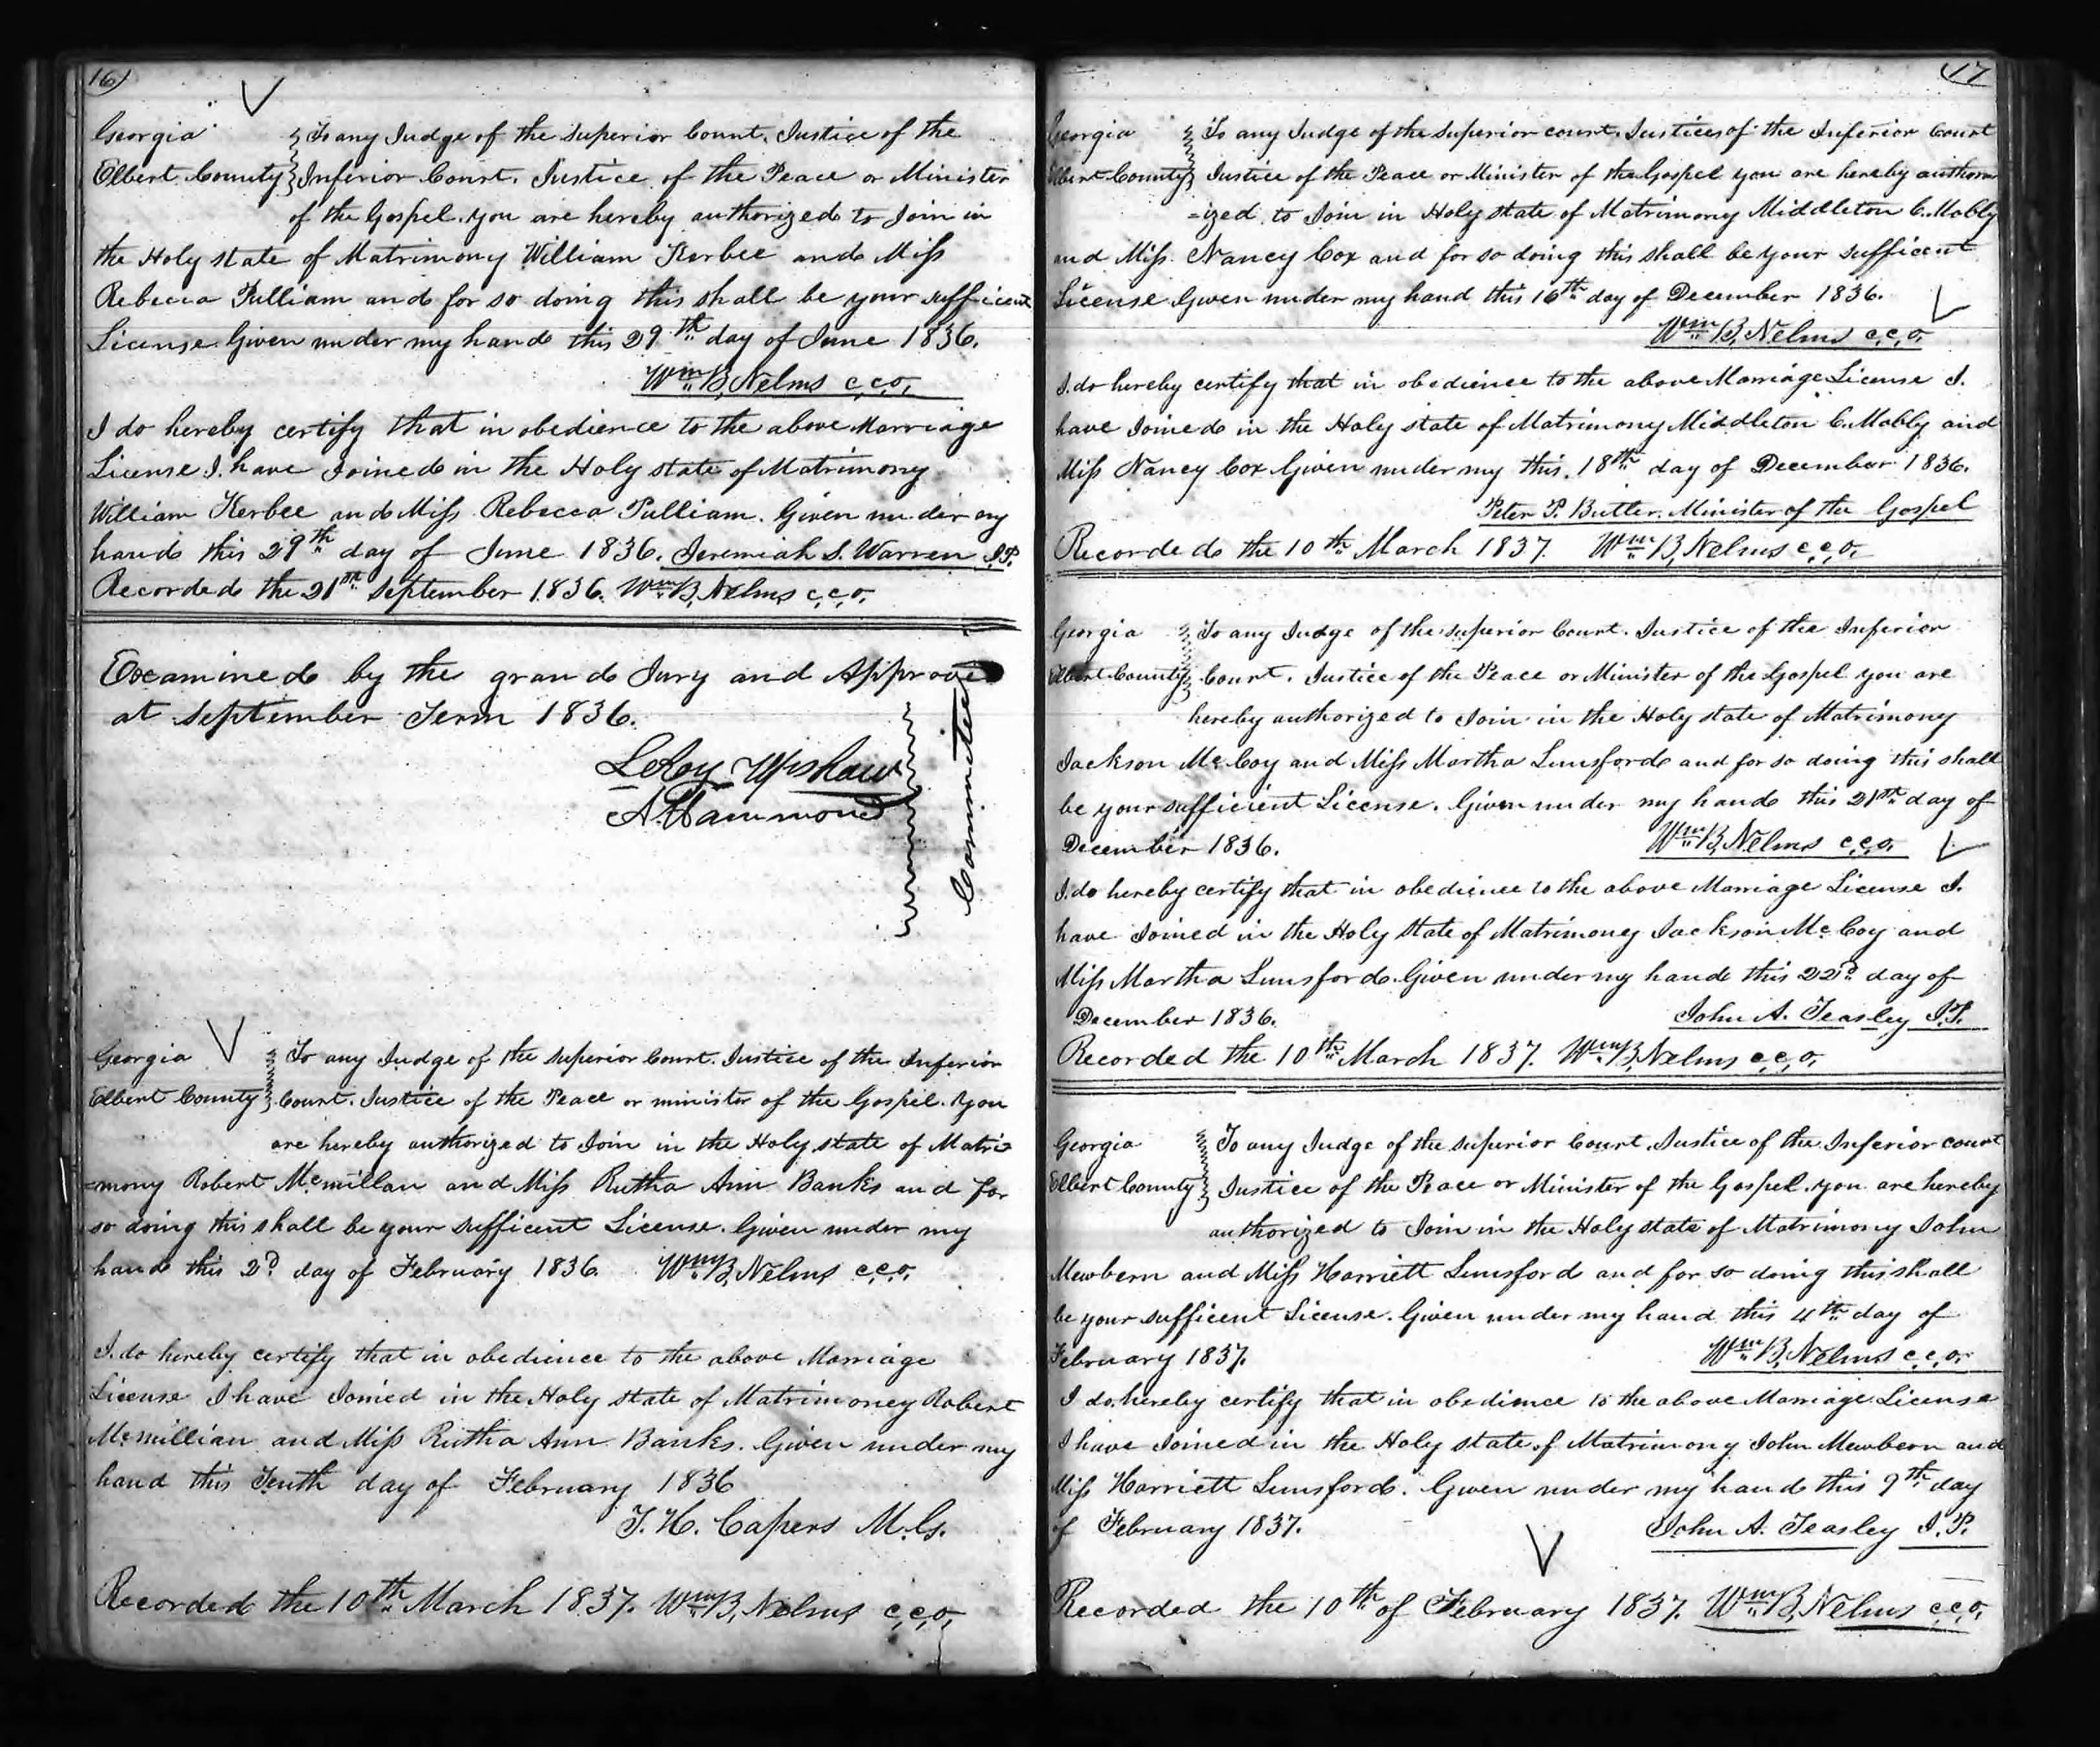 16)
Georgia
To any Judge of the Superior Court. Justice of the
Elbert County Inferior Court. Justice of the Peace or Minister
of the Gospel. you are hereby authorized to Join in
the Holy state of Matrimony William Kerbee and Miss
Rebecca Pulliam and for so doing this shall be your sufficent
License. Given under my hand this 29th day of June 1836.
Wm B, Nelms c,c,o,
I do hereby certify that in obedience to the above Marriage
License I. have Joined in the Holy state of Matrimony
William Kerbee and Miss Rebecca Pulliam. Given under my
hand this 29th day of June 1836. Jeremiah S. Warren J.P.
Recorded the 21st September 1836. Wm B, Nelms c,c,o,
Examined by the grand Jury and Approved
at September Term 1836.
LeRoy Upshaw
A. Hammond
Committee
Georgia
To any Judge of the Superior Court. Justice of the Inferior
Elbert County Court. Justice of the Peace or minister of the Gospel. you
are hereby authorized to Join in the Holy state of Matri=
=mony Robert Mcmillan and Miss Rutha Ann Banks and for
so doing this shall be your sufficent License. Given under my
hand this 2d day of February 1836. Wm B, Nelms c,c,o,
I. do hereby certify that in obedience to the above Marriage
License I have Joined in the Holy state of Matrimoney Robert
Mcmillian and Miss Rutha Ann Banks. Given under my
hand this Tenth day of February 1836
T. H. Capers M.G.
Recorded the 10th March 1837. Wm B, Nelms c,c,o,
17
Georgia To any Judge of the Superior court. Justices of the Inferior Court
Elbert County Justice of the Peace or Minister of the Gospel you are hereby author
=ized to Join in Holy state of Matrimony Middleton C. Mobly
and Miss Nancy Cox and for so doing this shall be your sufficent
License Given under my hand this 16th day of December 1836.
Wm B, Nelms c,c,o,
I. do hereby certify that in obedience to the above Marriage License I.
have Joined in the Holy state of Matrimony Middleton C. Mobly and
Miss Nancy Cox Given under my this. 18th day of December 1836.
Peter P. Butler. Minister of the Gospel
Recorded the 10th March 1837. Wm B, Nelms c,c,o,
Georgia To any Judge of the Superior Court. Justice of the Inferior
Elbert County Court. Justice of the Peace or Minister of the Gospel you are
hereby authorized to Join in the Holy state of Matrimony
Jackson McCoy and Miss Martha Lunsford and for so doing this shall
be your sufficient License. Given under my hand this 21st day of
December 1836. Wm B, Nelms c,c,o,
I. do hereby certify that in obedience to the above Marriage License I.
have Joined in the Holy State of Matrimoney Jackson McCoy and
Miss Martha Lunsford. Given under my hand this 22d day of
December 1836. John A. Teasley J.P.
Recorded the 10th March 1837. Wm B, Nelms c,c,o,
Georgia To any Judge of the Superior Court. Justice of the Inferior court
Elbert County Justice of the Peace or Minister of the Gospel. you are hereby
authorized to Join in the Holy state of Matrimony John
Mewbern and Miss Harriett Lunsford and for so doing this shall
be your sufficent License. Given under my hand this 4th day of
February 1837. Wm B, Nelms c,c,o,
I do hereby certify that in obedience to the above Marriage License
I have Joined in the Holy state of Matrimony John Mewbern and
Miss Harriett Lunsford. Given under my hand this 9th day
of February 1837. John A. Teasley J.P.
Recorded the 10th of February 1837. Wm B, Nelms c,c,o,